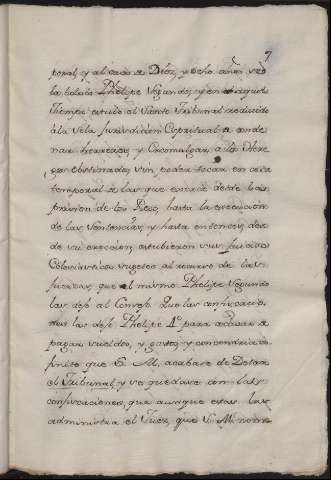 7
poral, y al cavo de Diez, y ocho años vso
la boluio Phelipe Segundo, y en aquel
Tiempo estubo el Santo Tribunal reducido
à la sola Jurisdiccion Espiritual a conde
nar herexes, y Excomulgar a los Here
ges obstinados, sin poder tocar en cosa
temporal a las que corria desde la a
prission de los Reos, hasta la execucion
de las Sentencias, y hasta entonces, des
de su ereccion estubieron sus Juicios
sugetos al recurso de las
fuerzas, que el mismo Phelipe Segundo
las dejó al Consejo. Que las confiscacio
nes las dejo Phelipe 4º para aiudar a
pagar sueldos, y gastos, y con
finito que S. M. acabase de Dotar
el Tribunal, y se quedase con las
confiscaciones, que aunque estas las
administra el Juez, que S. M. nom